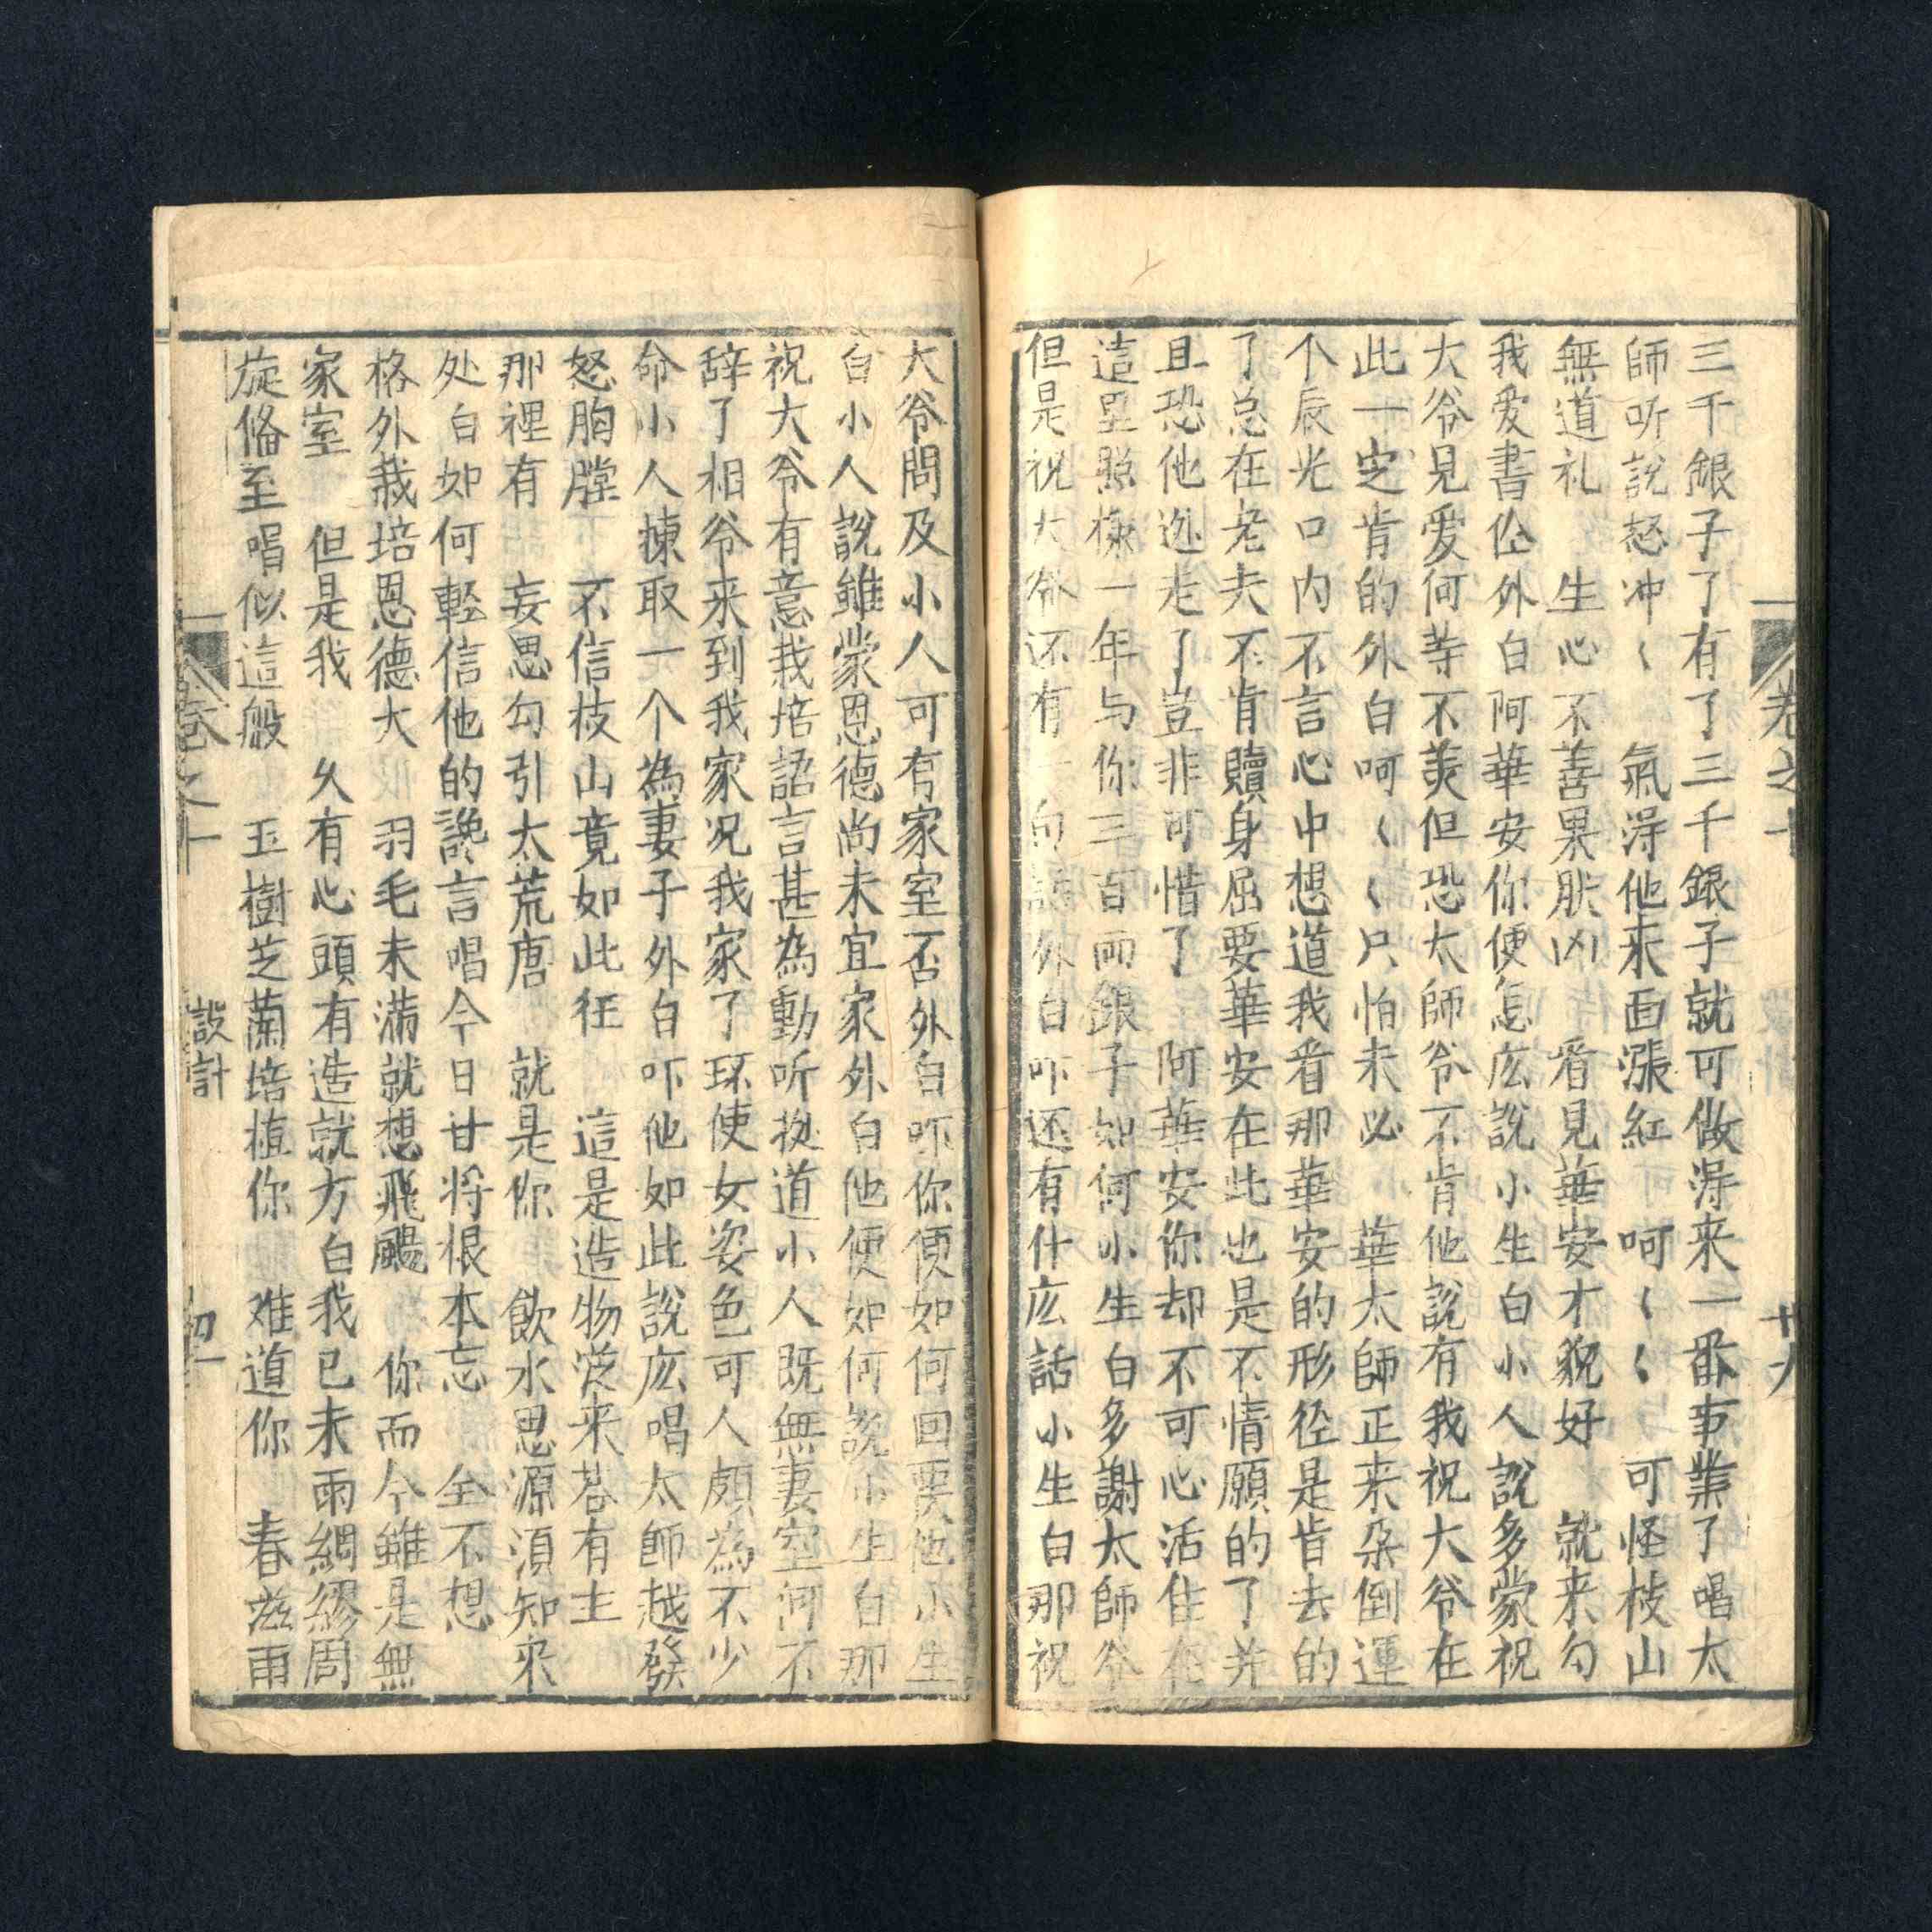 卷之十
廿九
三千銀子了有了三千銀子就可做淂来一番事業了唱太
師听說怒冲〱　氣淂他来面漲紅　呵〱〱　可怪枝山
無道礼　生心不善果肰凶　看見華安才貌好　就来勾
我爱書伀外白阿華安你便怎庅說小生白小人說多蒙祝
大爷見爱何等不羙但恐太師爷不肯他說有我祝大爷在
此一定肯的外白呵〱〱只怕未必　華太師正来朶倒運
个辰光口内不言心中想道我看那華安的形径是肯去的
了总在老夫不肯贖身屈要華安在此也是不情願的了并
且恐他迯走了豈非可惜了　阿華安你却不可心活住在
這里照樣一年与你三百兩銀子如何小生白多謝太師爷
但是祝大爷还有一句話外白吓还有什庅話小生白那祝
大爷問及小人可有家室否外白吓你便如何回𮗚他小生
白小人說雖蒙恩德尚未宜家外白他便如何說小生白那
祝大爷有意栽培語言甚為動听挺道小人既無妻室何不
辞了相爷来到我家况我家了环使女姿色可人頗為不少
命小人揀取一个為妻子外白吓他如此說庅唱太師越發
怒胸膛　不信枝山竟如此狂　這是造物從来若有主
那裡有　妄思勾引太荒唐　就是你　飲水思源須知来
处白如何輕信他的讒言唱今日甘将根本忘　全不想
格外栽培恩德大　羽毛未滿就想飛颺　你而今雖是無
家室　但是我　久有心頭有造就方白我已未雨綢繆周
旋俻至唱似這般　玉樹芝蘭培植你　难道你　春滋雨
卷之十
設計